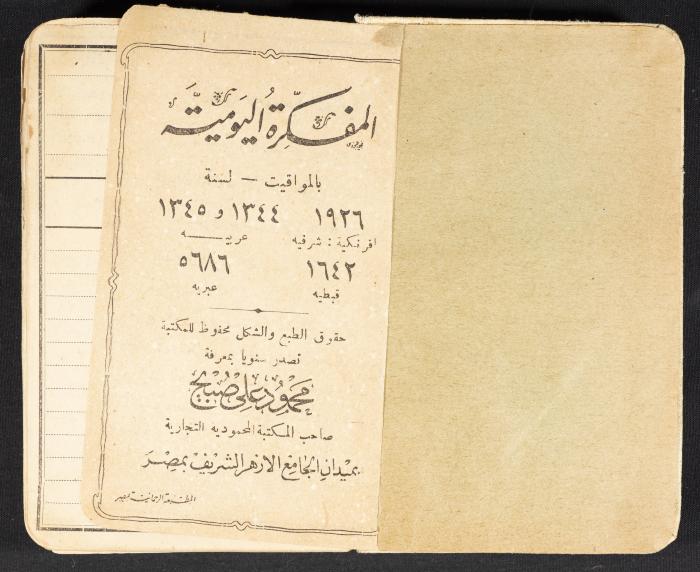 المفكرة اليومية
بالمواقيت — لسنة
١٩٢٦ ١٣٤٤ و ١٣٤٥
افرنكية : شرقيه عربيـــه
١٦٤٢ ٥٦٨٦
قبطيه عبريه
حقوق الطبع والشكل محفوظ للمكتبة
تصدر سنويا بمعرفة
محمود علي صبيح
صاحب المكتبة المحموديه التجارية
بميدان الجامع الازهر الشريف بمصر
المطبعة الرحمانية بمصر